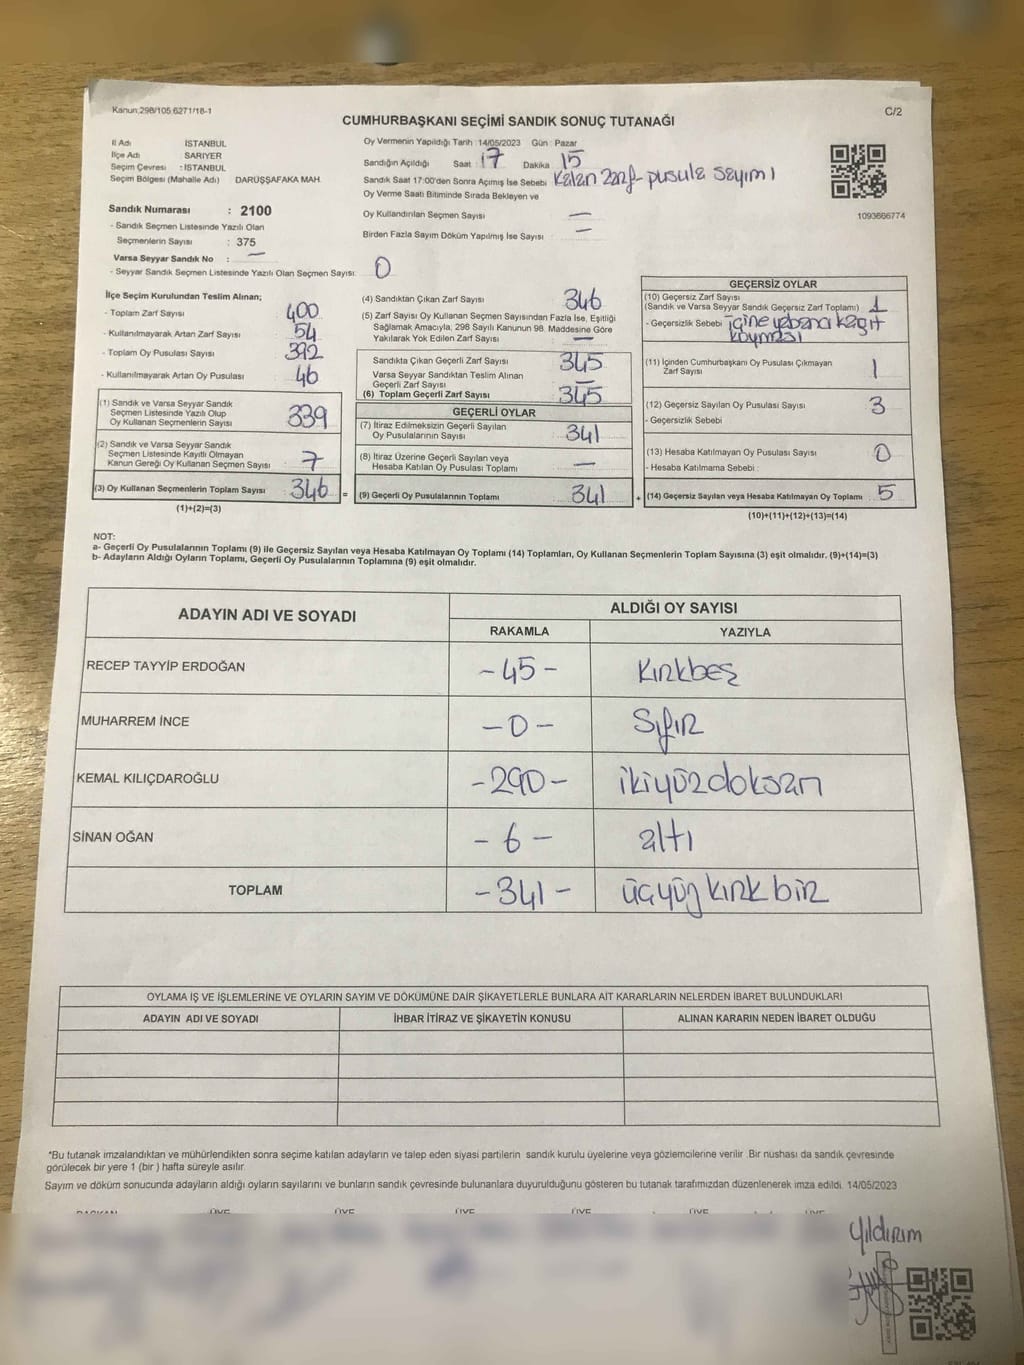 Kanun:298/105 6271/18-1
C/2
CUMHURBAŞKANI SEÇİMİ SANDIK SONUÇ TUTANAĞI
İl Adı İSTANBUL
İlçe Adı SARIYER
Seçim Çevresi : İSTANBUL
Seçim Bölgesi (Mahalle Adı) DARÜŞŞAFAKA MAH.
Sandık Numarası : 2100
- Sandık Seçmen Listesinde Yazılı Olan
Seçmenlerin Sayısı : 375
Varsa Seyyar Sandık No : —
- Seyyar Sandık Seçmen Listesinde Yazılı Olan Seçmen Sayısı: 0
Oy Vermenin Yapıldığı Tarih :14/05/2023 Gün : Pazar
Sandığın Açıldığı Saat : 17 Dakika : 15
Sandık Saat 17:00'den Sonra Açımış İse Sebebi Kalan zarf-pusula sayımı
Oy Verme Saati Bitiminde Sırada Bekleyen ve
Oy Kullandırılan Seçmen Sayısı —
Birden Fazla Sayım Döküm Yapılmış İse Sayısı : —
1093666774
İlçe Seçim Kurulundan Teslim Alınan;
- Toplam Zarf Sayısı 400
- Kullanılmayarak Artan Zarf Sayısı : 54
- Toplam Oy Pusulası Sayısı 392
- Kullanılmayarak Artan Oy Pusulası 46
(1) Sandık ve Varsa Seyyar Sandık
Seçmen Listesinde Yazılı Olup
Oy Kullanan Seçmenlerin Sayısı 339
(2) Sandık ve Varsa Seyyar Sandık
Seçmen Listesinde Kayıtlı Olmayan
Kanun Gereği Oy Kullanan Seçmen Sayısı 7
(3) Oy Kullanan Seçmenlerin Toplam Sayısı : 346 =
(1)+(2)=(3)
(4) Sandıktan Çıkan Zarf Sayısı 346
(5) Zarf Sayısı Oy Kullanan Seçmen Sayısından Fazla İse, Eşitliği
Sağlamak Amacıyla, 298 Sayılı Kanunun 98. Maddesine Göre
Yakılarak Yok Edilen Zarf Sayısı —
Sandıkta Çıkan Geçerli Zarf Sayısı 345
Varsa Seyyar Sandıktan Teslim Alınan
Geçerli Zarf Sayısı —
(6) Toplam Geçerli Zarf Sayısı 345
GEÇERLİ OYLAR
(7) İtiraz Edilmeksizin Geçerli Sayılan
Oy Pusulalarının Sayısı 341
(8) İtiraz Üzerine Geçerli Sayılan veya
Hesaba Katılan Oy Pusulası Toplamı —
(9) Geçerli Oy Pusulalarının Toplamı 341 +
GEÇERSİZ OYLAR
(10) Geçersiz Zarf Sayısı
(Sandık ve Varsa Seyyar Sandık Geçersiz Zarf Toplamı) : 1
- Geçersizlik Sebebi : içine yabancı kağıt
koyması
(11) İçinden Cumhurbaşkanı Oy Pusulası Çıkmayan
Zarf Sayısı 1
(12) Geçersiz Sayılan Oy Pusulası Sayısı 3
- Geçersizlik Sebebi
(13) Hesaba Katılmayan Oy Pusulası Sayısı 0
- Hesaba Katılmama Sebebi :
(14) Geçersiz Sayılan veya Hesaba Katılmayan Oy Toplamı : 5
(10)+(11)+(12)+(13)=(14)
NOT:
a- Geçerli Oy Pusulalarının Toplamı (9) ile Geçersiz Sayılan veya Hesaba Katılmayan Oy Toplamı (14) Toplamları, Oy Kullanan Seçmenlerin Toplam Sayısına (3) eşit olmalıdır. (9)+(14)=(3)
b- Adayların Aldığı Oyların Toplamı, Geçerli Oy Pusulalarının Toplamına (9) eşit olmalıdır.
ADAYIN ADI VE SOYADI ALDIĞI OY SAYISI
RAKAMLA YAZIYLA
RECEP TAYYİP ERDOĞAN -45- kırkbeş
MUHARREM İNCE -0- Sıfır
KEMAL KILIÇDAROĞLU -290- ikiyüzdoksan
SİNAN OĞAN -6- altı
TOPLAM -341- üçyüz kırk bir
OYLAMA İŞ VE İŞLEMLERİNE VE OYLARIN SAYIM VE DÖKÜMÜNE DAİR ŞİKAYETLERLE BUNLARA AİT KARARLARIN NELERDEN İBARET BULUNDUKLARI
ADAYIN ADI VE SOYADI İHBAR İTİRAZ VE ŞİKAYETİN KONUSU ALINAN KARARIN NEDEN İBARET OLDUĞU
*Bu tutanak imzalandıktan ve mühürlendikten sonra seçime katılan adayların ve talep eden siyasi partilerin sandık kurulu üyelerine veya gözlemcilerine verilir .Bir nüshası da sandık çevresinde
görülecek bir yere 1 (bir ) hafta süreyle asılır.
Sayım ve döküm sonucunda adayların aldığı oyların sayılarını ve bunların sandık çevresinde bulunanlara duyurulduğunu gösteren bu tutanak tarafımızdan düzenlenerek imza edildi. 14/05/2023
BAŞKAN ÜYE ÜYE ÜYE ÜYE ÜYE ÜYE
Yıldırım